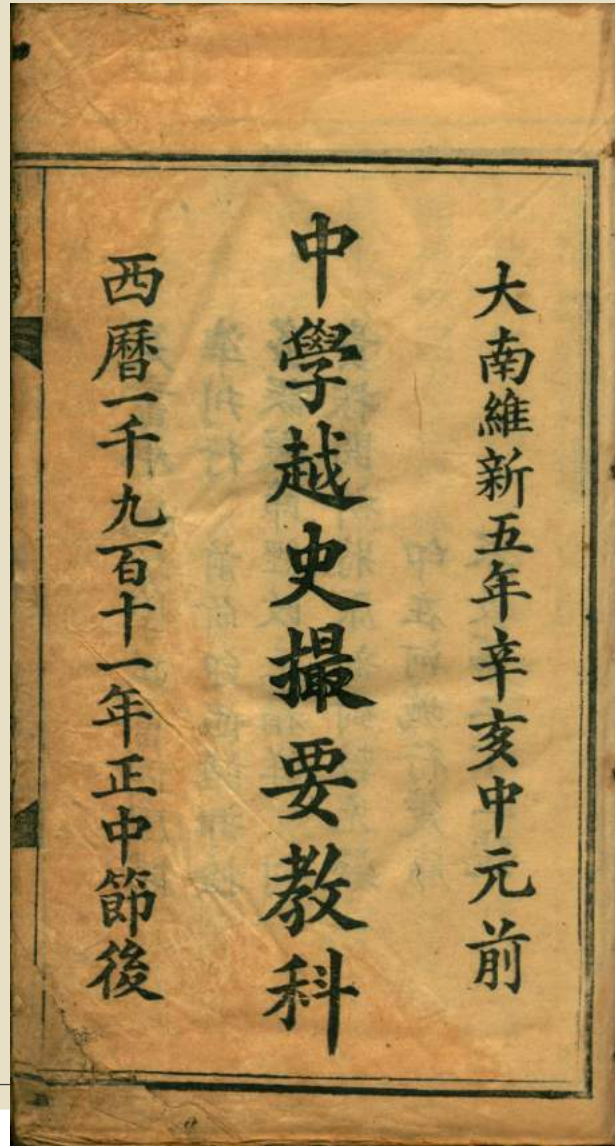 大南維新五年辛亥中元前
中學越史撮要教科
西曆一千九百十一年正中節後